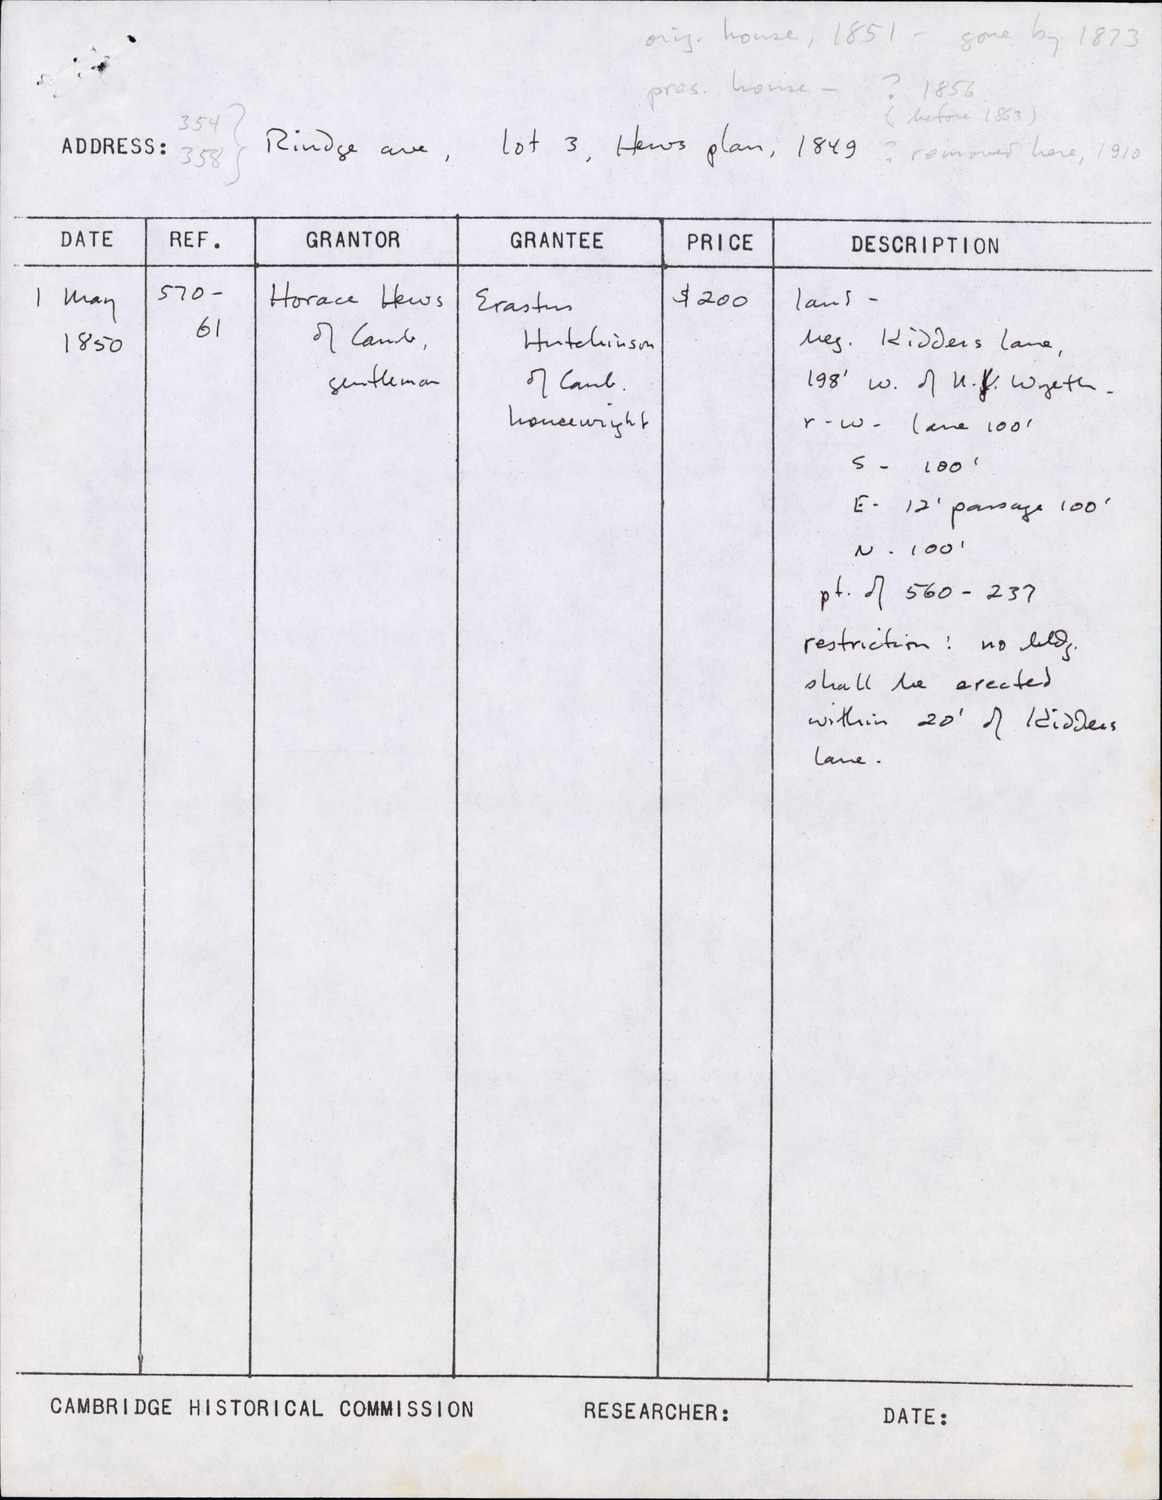 orig. house, 1851 - gone by 1873
pres. house - ? 1856
( before 1863)
? removed here, 1910
354
358
ADDRESS: Rindge ave, lot 3, Hews plan, 1849
DATE REF. GRANTOR GRANTEE PRICE DESCRIPTION
1 May
1850
570-
61
Horace Hews
of Camb,
gentleman
Erastus
Hutchinson
of Camb.
housewright
$200
land -
beg. Kidders lane,
198' w. of N. Wyeth -
r-w- lane 100'
S - 100'
E- 12' passage 100'
N - 100'
pt. of 560-237
restriction: no bldg.
shall be erected
within 20' of Kidders
lane.
CAMBRIDGE HISTORICAL COMMISSION RESEARCHER: DATE: